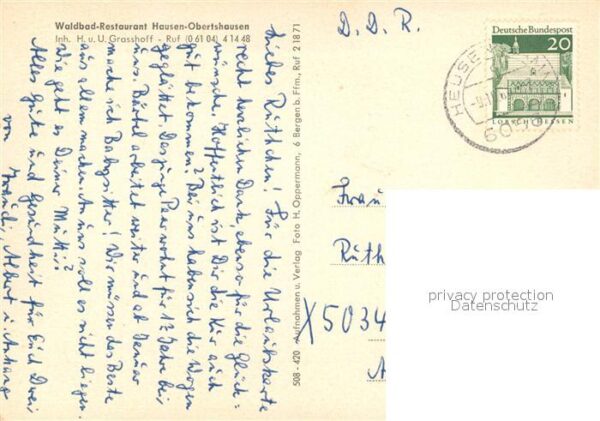 Waldbad-Restaurant Hausen-Obertshausen
Inh. H. u. U. Grasshoff - Ruf (0 61 04) 4 14 48
Liebes Ruthchen! Für die Urlaubskarte
recht herzlichen Dank, ebenso für die Glück-
wünsche. Hoffentlich ist Dir die Kur auch
gut bekommen? Bei uns haben sich die Wogen
geglättet. Das junge Paar wohnt für 1/2 Jahr bei
uns. Bärbel arbeitet weiter und ab Januar
mache ich Babysitter! Wir müssen das Beste
aus allem machen. An uns soll es nicht liegen.
Wie geht es Deiner Mutti?
Alles Gute und Gesundheit für Euch Drei
von Albert u. Anhang
508 - 420 Aufnahmen u. Verlag Foto H. Oppermann, 6 Bergen b. Ffm., Ruf 2 18 71
D. D. R.
Deutsche Bundespost
20
LORSCH HESSEN
HEUSE
Frau
Ruth
X5034
privacy protection
Datenschutz